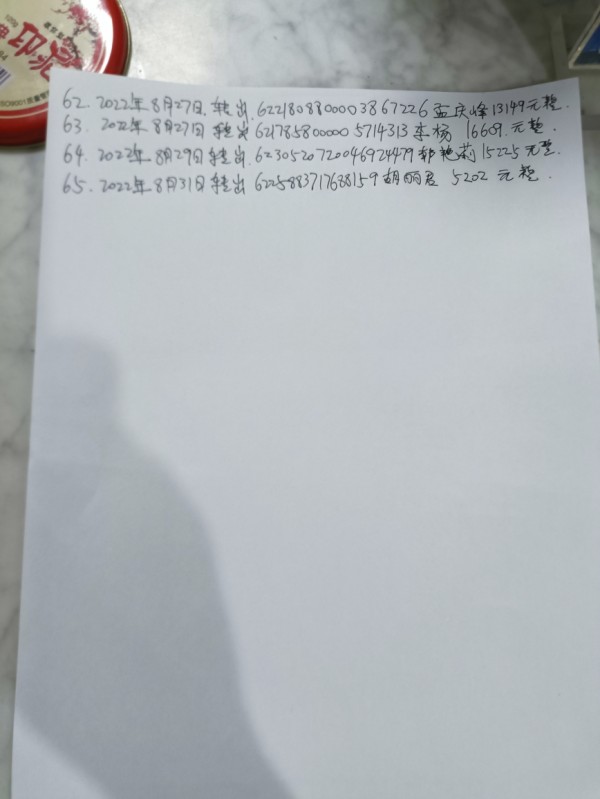 印泥
ISO9001质量管
62. 2022年8月27日. 转出. 6221808800003867226 孟庆峰 13149元整.
63. 2022年8月27日 转出 6217858000005714313 车杨 16609.元整.
64. 2022年8月29日 转出. 6230520720046924479 郭艳莉 15225元整
65. 2022年8月31日 转出 6225883717688159 胡丽君 5202 元整.